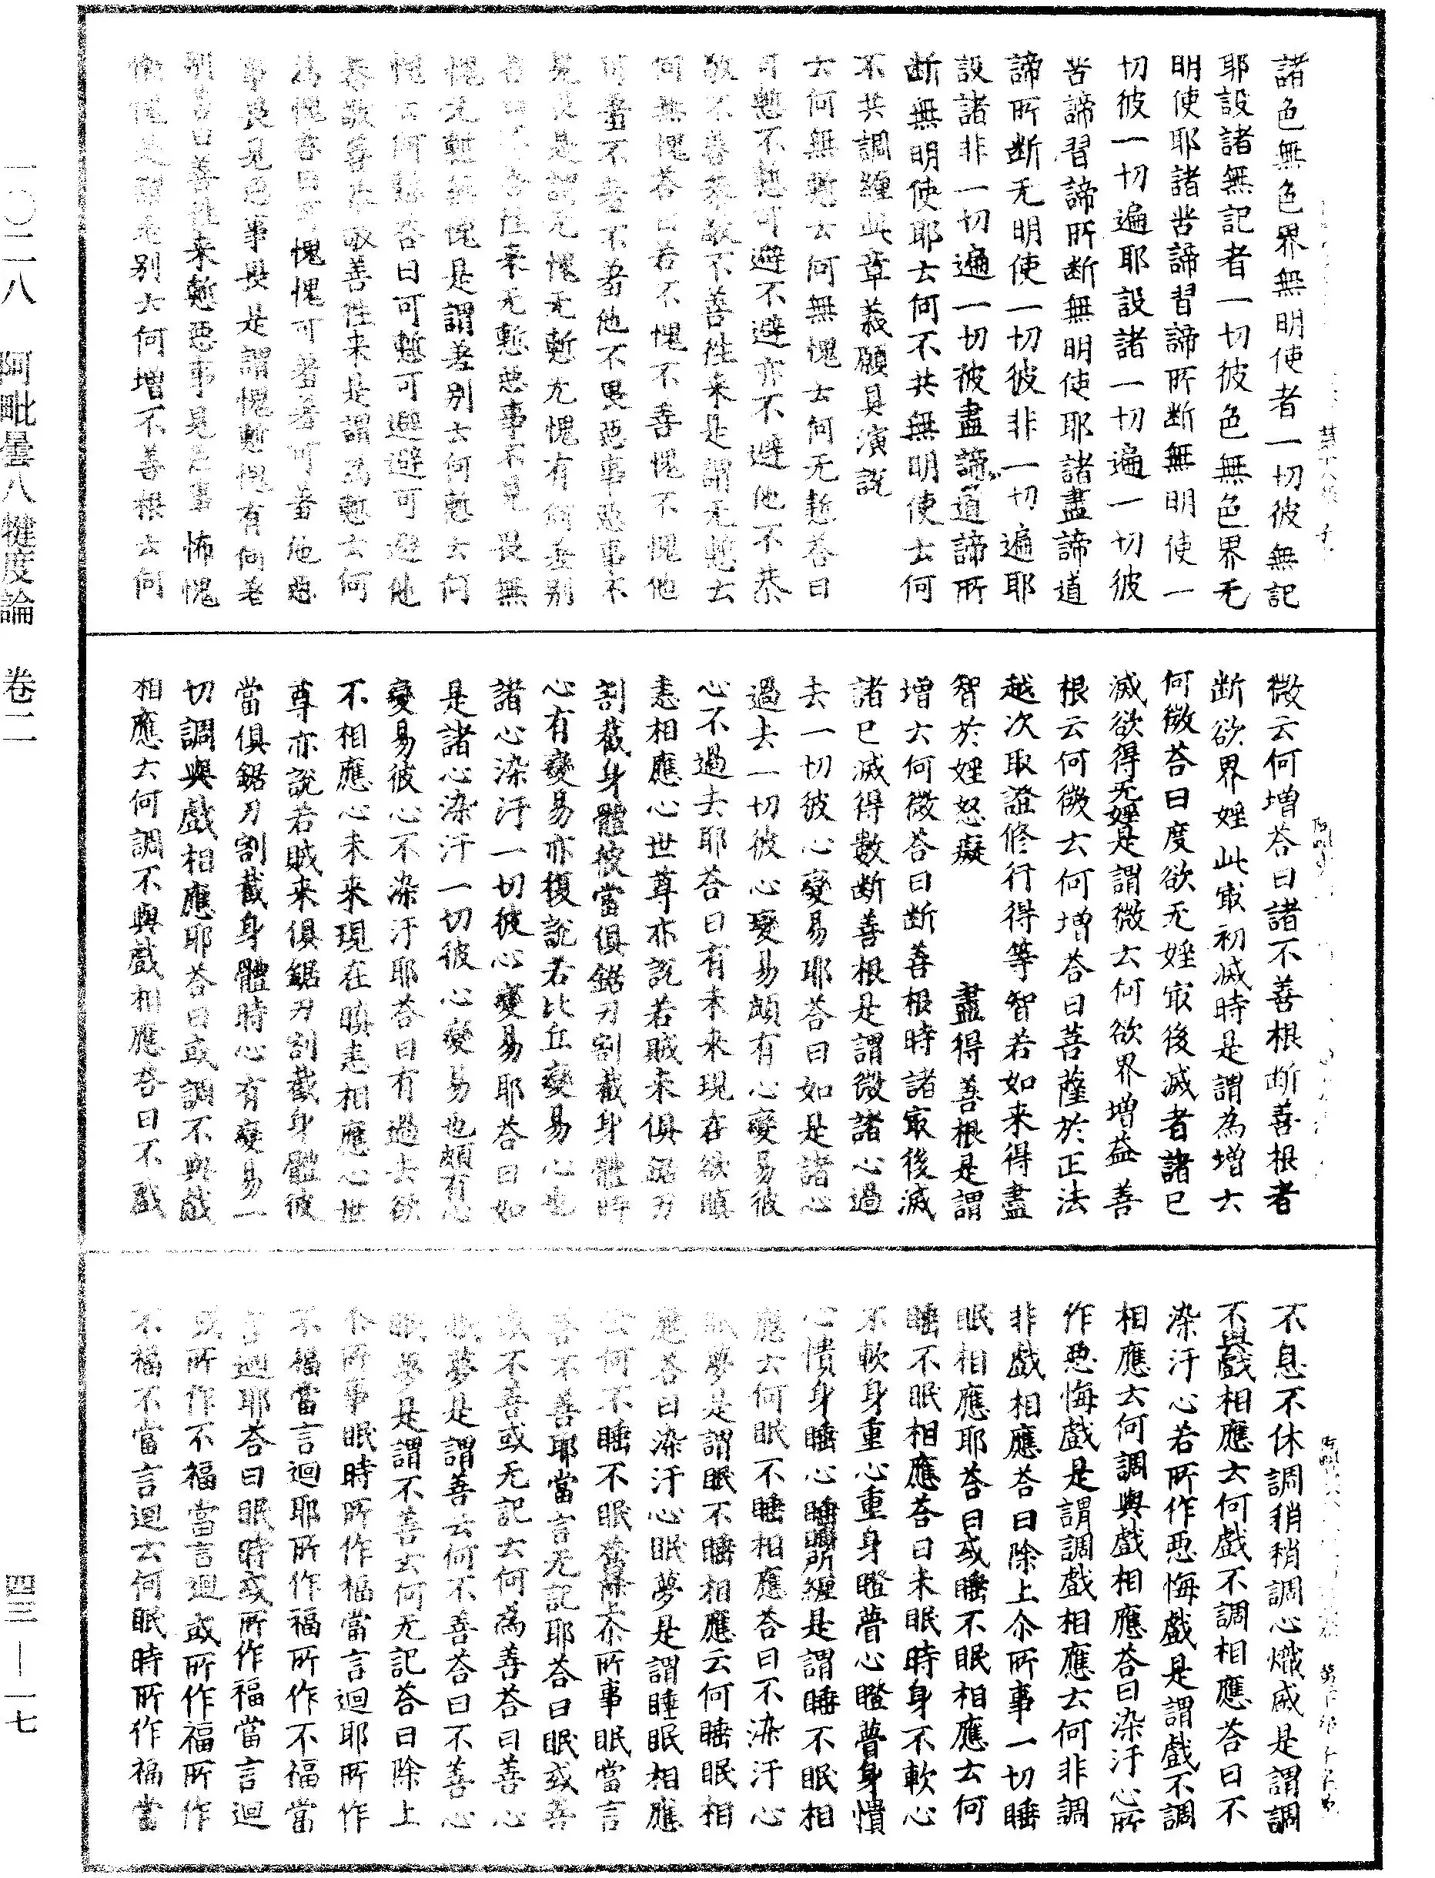 諸色無色界無明使者一切彼無記
耶設諸無記者一切彼色無色界无
明使耶諸苦諦習諦所断無明使一
切彼一切遍耶設諸一切遍一切彼
苦諦習諦所断無明使耶諸盡諦道
諦所断无明使一切彼非一切遍耶
設諸非一切遍一切彼盡諦道諦所
断無明使耶云何不共無明使云何
不共調纏此章義願具演説
云何無慙云何無愧云何无慙荅曰
可慙不慙可避不避亦不避他不恭
敬不善恭敬不善往来是謂无慙云
何無愧荅曰若不愧不善愧不愧他
可羞不羞不羞他不畏惡事惡事不
見畏是謂无愧无慙无愧有何差別
荅曰不善往来无慙惡事不見畏無
愧无慙無愧是謂差別云何慙云何
愧云何慙荅曰可慙可避避可避他
恭敬善恭敬善往来是謂為慙云何
為愧荅曰可愧愧可羞羞可羞他惡
事畏見惡事畏是謂愧慙愧有何差
別荅曰善往来慙惡事見惡事怖愧
慙愧是謂差別云何増不善根云何
微云何増荅曰諸不善根断善根者
断欲界婬此冣初滅時是謂為増云
何微荅曰度欲无婬冣後滅者諸已
滅欲得无婬是謂微云何欲界増益善
根云何微云何増荅曰菩薩於正法
越次取證修行得等智若如来得盡
智於婬怒癡 盡得善根是謂
増云何微荅曰断善根時諸冣後滅
諸已滅得數断善根是謂微諸心過
去一切彼心變易耶荅曰如是諸心
過去一切彼心變易頗有心變易彼
心不過去耶荅曰有未来現在欲瞋
恚相應心世尊亦説若賊来俱鋸刀
割截身體彼當俱鋸刀割截身體時
心有變易亦復説若比丘變易心也
諸心染汙一切彼心變易耶荅曰如
是諸心染汙一切彼心變易也頗有心
變易彼心不染汙耶荅曰有過去欲
不相應心未来現在瞋恚相應心世
尊亦説若賊来俱鋸刀割截身體彼
當俱鋸刀割截身體時心有變易一
切調與戲相應耶荅曰或調不與戲
相應云何調不與戲相應荅曰不戲
不息不休調稍稍調心熾盛是謂調
不與戲相應云何戲不調相應荅曰不
染汙心若所作惡悔戲是謂戲不調
相應云何調與戲相應荅曰染汙心所
作惡悔戲是謂調戲相應云何非調
非戲相應荅曰除上尒所事一切睡
眠相應耶荅曰或睡不眠相應云何
睡不眠相應荅曰未眠時身不軟心
不軟身重心重身瞪瞢心瞪瞢身憒
心憒身睡心睡睡所纏是謂睡不眠相
應云何眠不睡相應荅曰不染汙心
眠夢是謂眠不睡相應云何睡眠相
應荅曰染汙心眠夢是謂睡眠相應
云何不睡不眠荅曰除上尒所事眠當言
善不善耶當言无記耶荅曰眠或善
或不善或无記云何為善荅曰善心
眠夢是謂善云何不善荅曰不善心
眠夢是謂不善云何无記荅曰除上
尒所事眠時所作福當言迴耶所作
不福當言迴耶所作福所作不福當
言迴耶荅曰眠時或所作福當言迴
或所作不福當言迴或所作福所作
不福不當言迴云何眠時所作福當
一〇二八 阿毗曇八犍度論 卷二
四三—一七